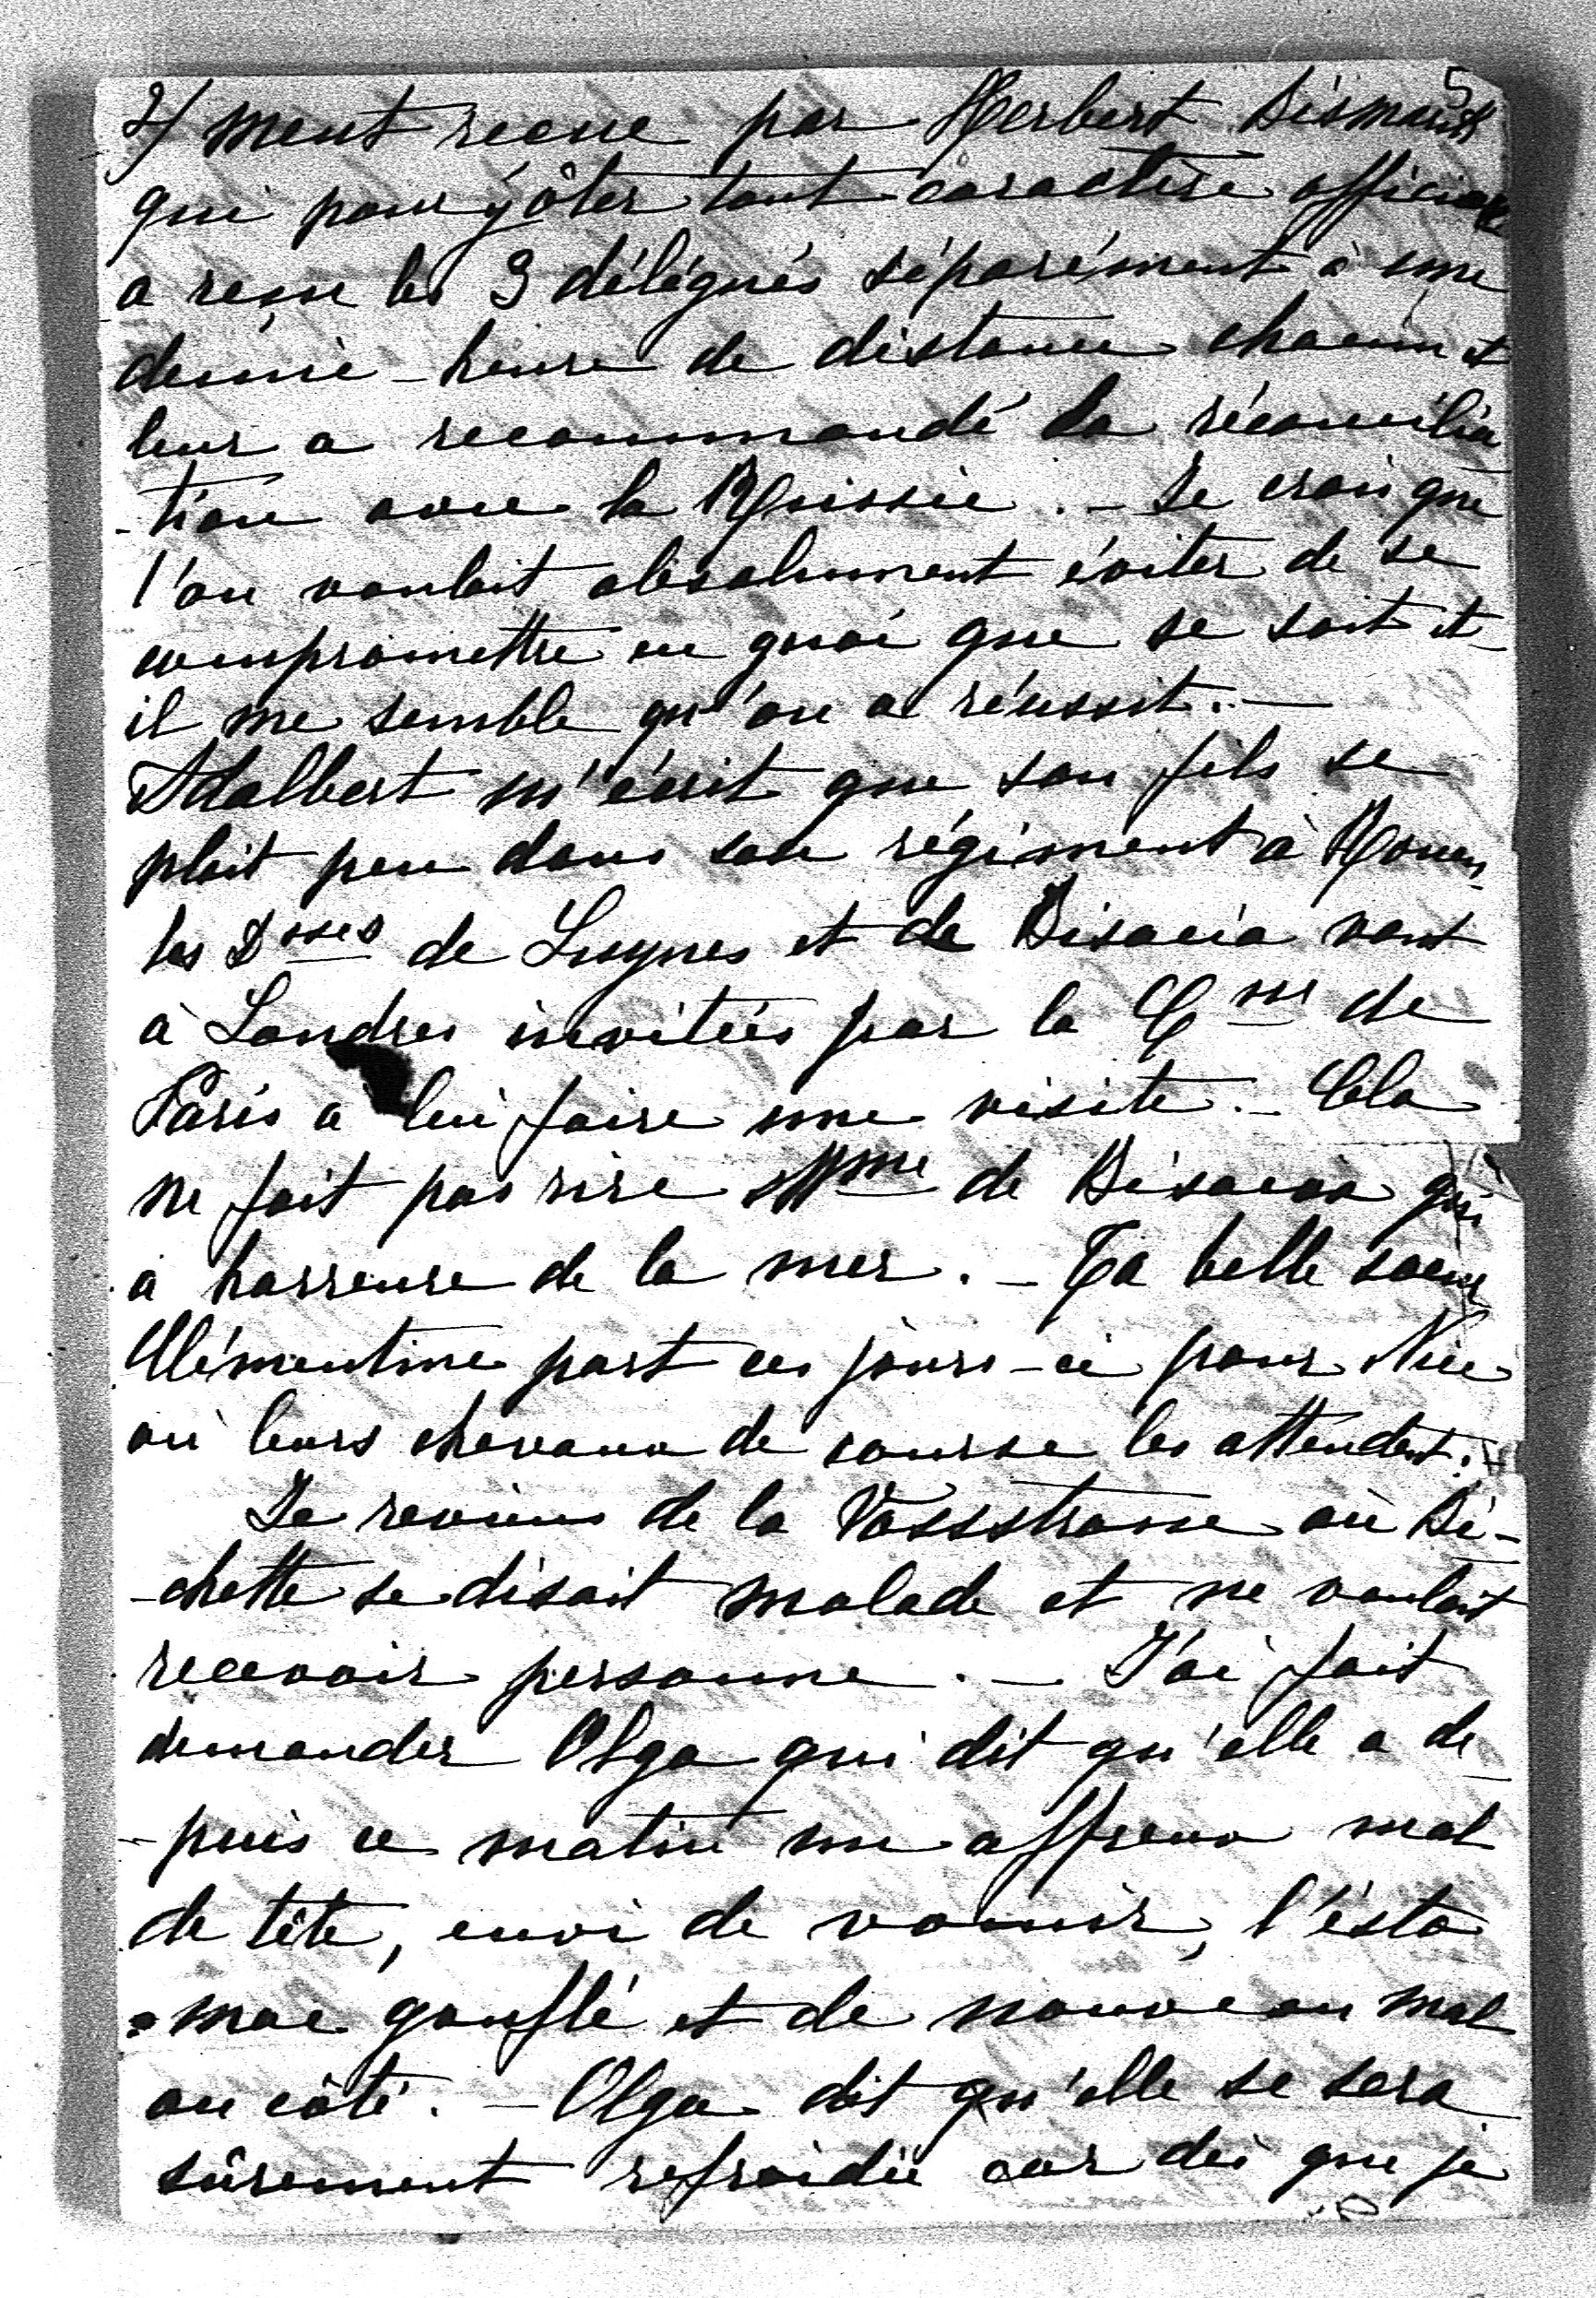 5
2/ ment recue par Herbert Bismark
qui pour y ôter tout caractère officiel
a reçu les 3 délégués séparément à une
demie-heure de distance chacun et
leur a recommandé la réconcilia
-tion avec la Russie. - Je crois que
l'on voulait absolument éviter de se
compromettre en quoi que se soit et
il me semble qu'on a réussit. -
Adalbert m'écrit que son fils se
plait peu dans son régiment à Rouen
les Dsses de Luynes et de Bisaccia vont
à Londres invitées par la Csse de
Paris a lui faire une visite. - Cela
ne fait pas rire Mme de Bisaccia qui
a horreure de la mer. - Ta belle soeur
Clémentine part ces jours-ci pour Nice
où leurs chevaux de course les attendent. -
Je reviens de la Vossstrasse où Bi-
-chette se disait malade et ne voulait
recevoir personne. - J'ai fait
demander Olga qui dit qu'elle a de
-puis ce matin un affreux mal
de tête, envi de vomir, l'ésto
-mac gonflé et de nouveau mal
au côté. - Olga dit qu'elle se sera
sûrement refroidie car dès que je